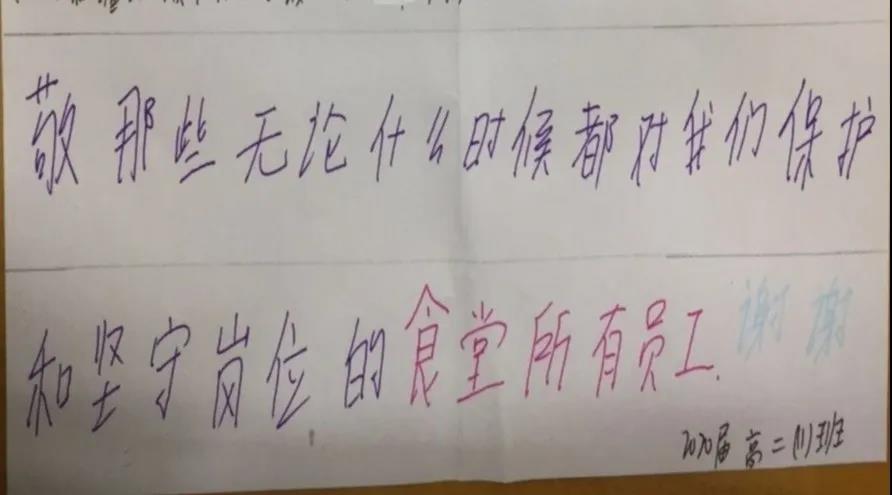 敬那些无论什么时候都对我们保护
和坚守岗位的食堂所有员工.谢谢
2020届高二(1)班